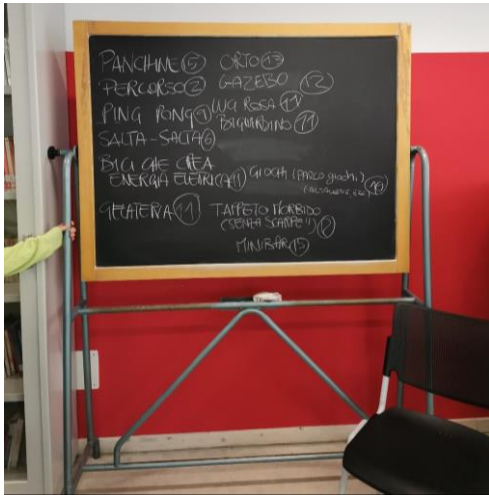 PANCHINE 5
PERCORSO 2
PING PONG
SALTA-SALTA 6
BICI CHE CREA
ENERGIA ELETTRICA 11
GELATERIA 11
ORTO 13
GAZEBO 12
LUCI ROSA 11
BIGLIARDINO 11
GIOCHI (PARCO giochi)
TAPPETO MORBIDO
(SENZA SCARPE!!)
MINIBAR 15